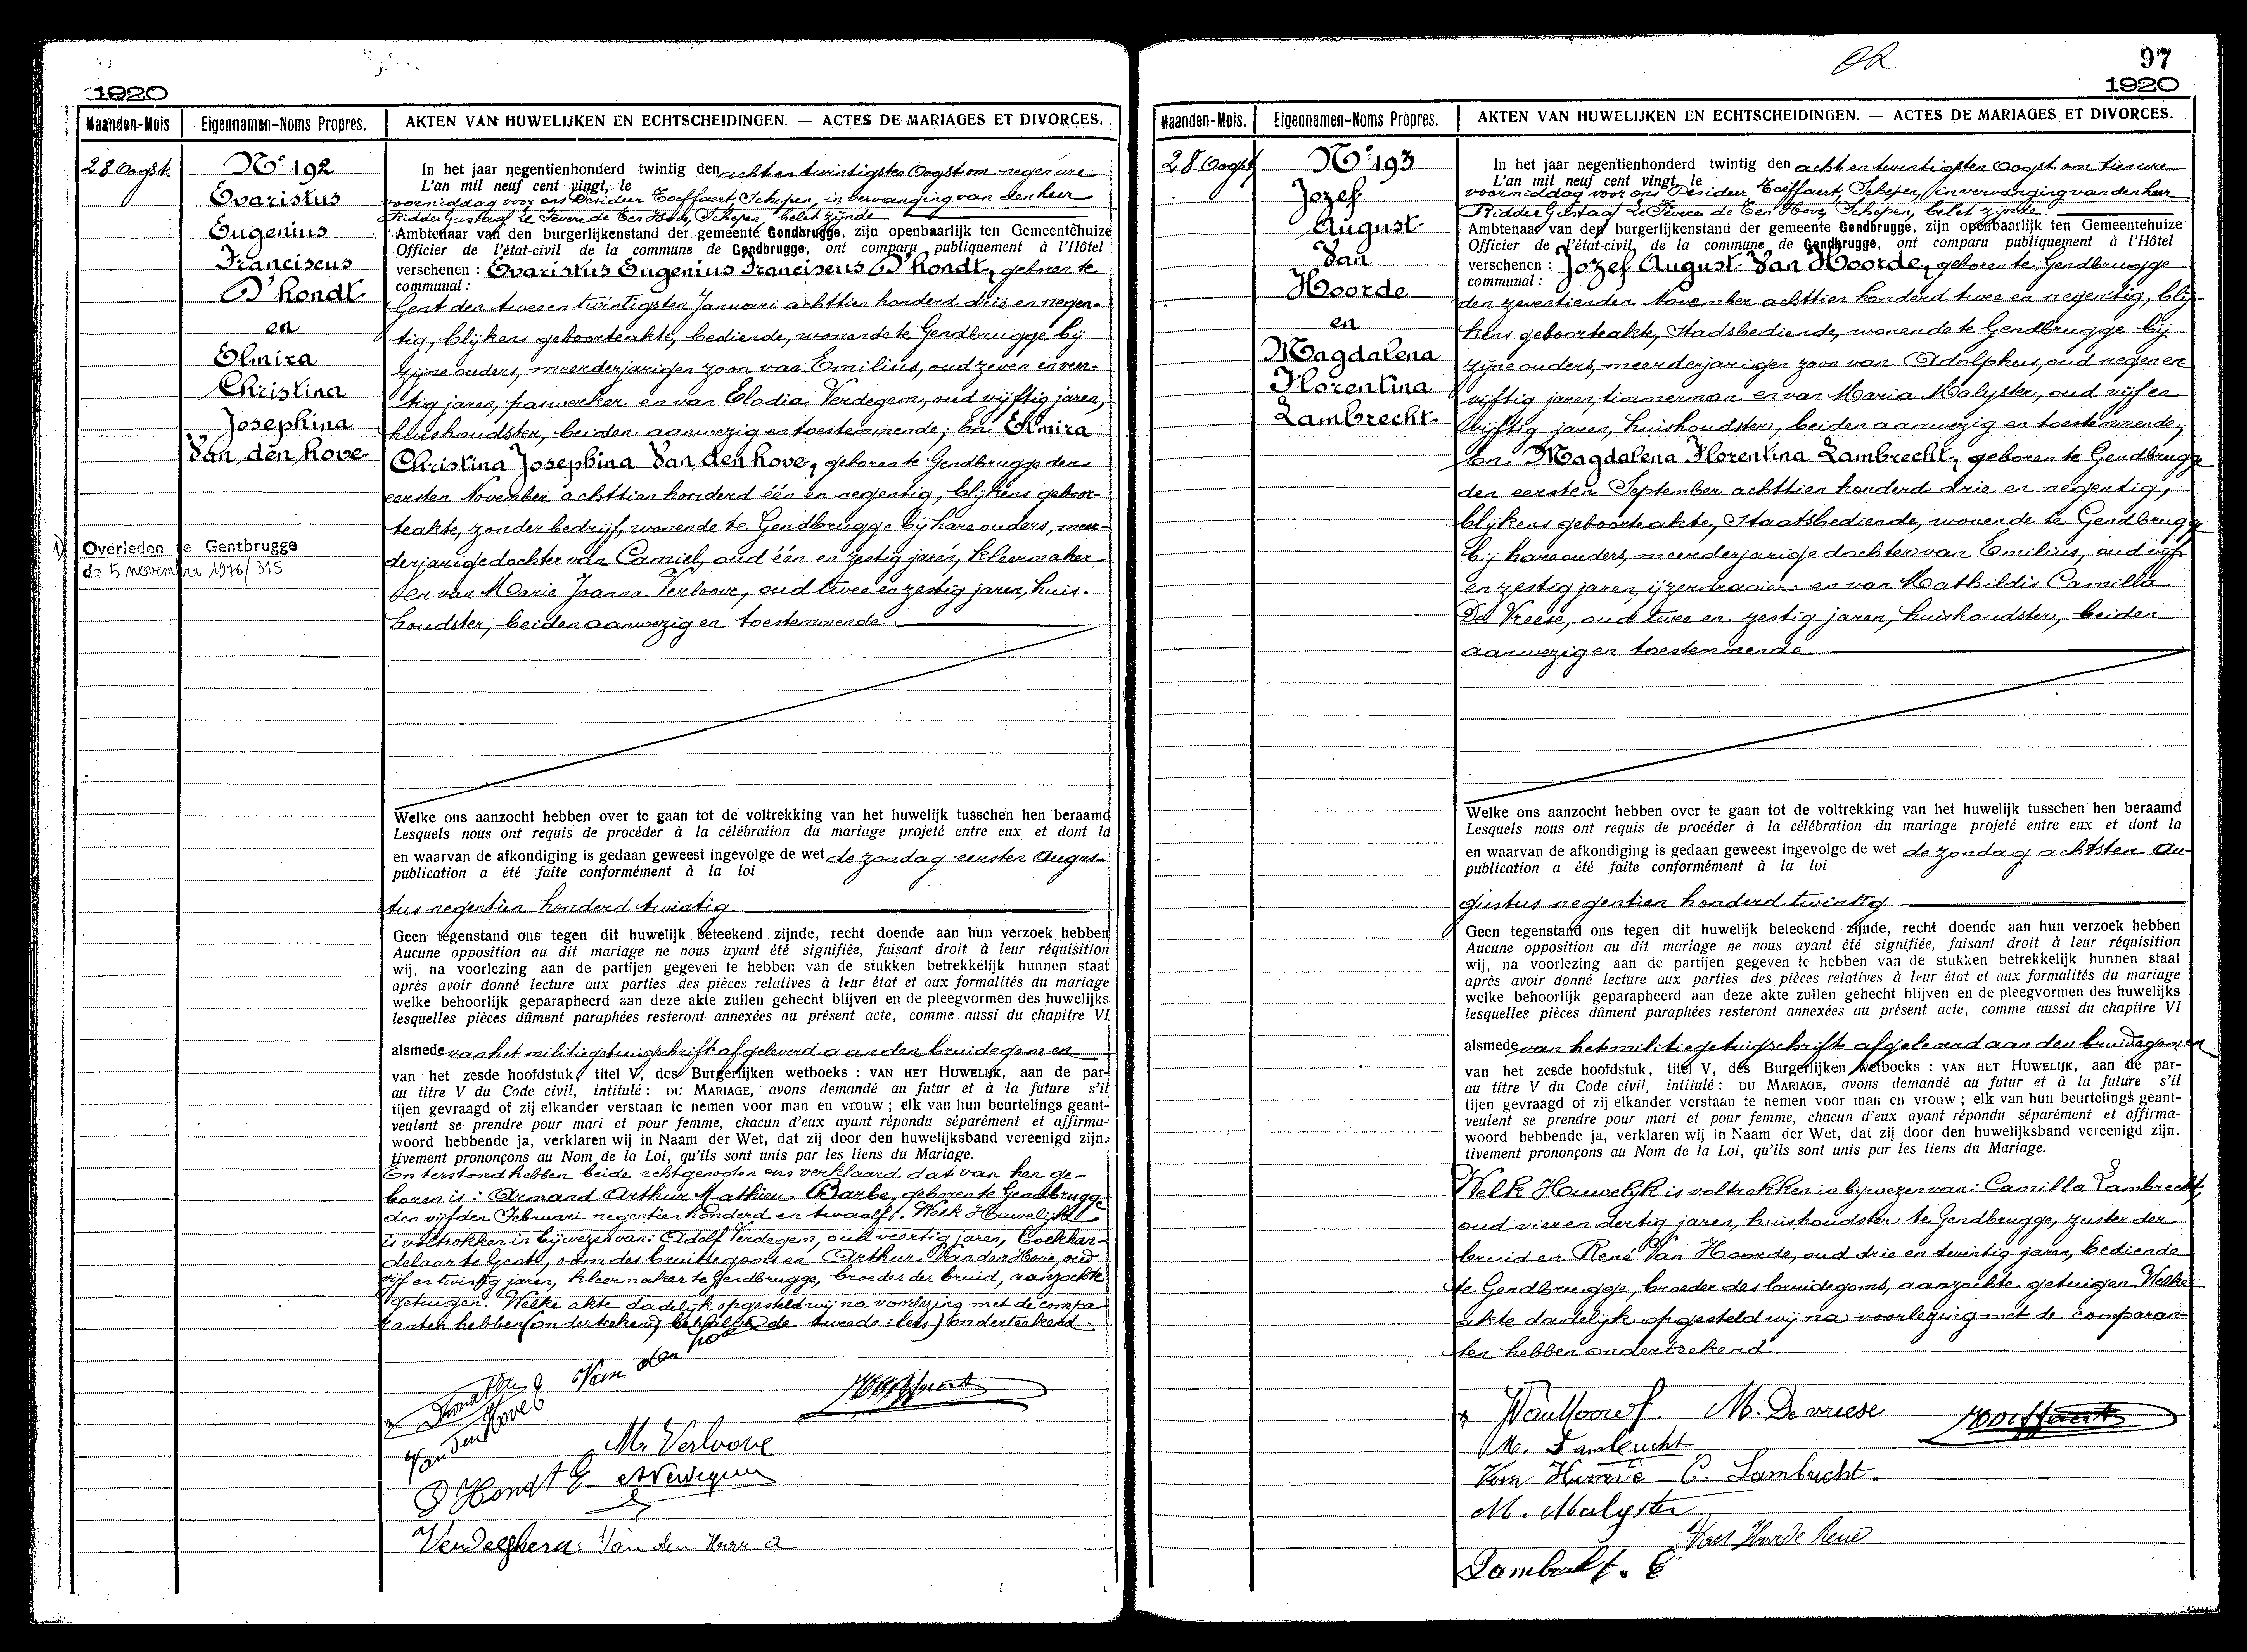 1920
Maanden-Mois Eigennamen-Noms Propres. AKTEN VAN HUWELIJKEN EN ECHTSCHEIDINGEN. — ACTES DE MARIAGES ET DIVORCES.
28 Oogst.
No 192
Evaristus
Eugenius
Franciscus
D'hondt
en
Elmira
Christina
Josephina
Van den hove
1) Overleden te Gentbrugge
de 5 november 1976/315
In het jaar negentienhonderd twintig den acht en twintigsten Oogst om negen ure
L'an mil neuf cent vingt, le
voormiddag voor ons Desideer Toeffaert, Schepen, in vervanging van den heer
Ridder Gustaaf Le Fevere de Ten Hove, Schepen, belet zijnde
Ambtenaar van den burgerlijkenstand der gemeente Gendbrugge, zijn openbaarlijk ten Gemeentehuize
Officier de l'état-civil de la commune de Gendbrugge, ont comparu publiquement à l'Hôtel
verschenen : Evaristus Eugenius Franciscus D'hondt, geboren te
communal :
Gent den twee en twintigsten Januari achttien honderd drie en negen-
tig, blijkens geboorteakte, bediende, wonende te Gendbrugge bij
zijne ouders, meerderjarigen zoon van Emilius, oud zeven en veer-
tig jaren, paswerker en van Elodia Verdegem, oud vijftig jaren,
huishoudster, beiden aanwezig en toestemmende; En Elmira
Christina Josephina Van den hove, geboren te Gendbrugge den
eersten November achttien honderd één en negentig, blijkens geboor-
teakte, zonder bedrijf, wonende te Gendbrugge bij hare ouders, meer-
derjarige dochter van Camiel, oud één en zestig jaren, kleermaker
en van Marie Joanna Verloove, oud twee en zestig jaren, huis-
houdster, beiden aanwezig en toestemmende.
Welke ons aanzocht hebben over te gaan tot de voltrekking van het huwelijk tusschen hen beraamd
Lesquels nous ont requis de procéder à la célébration du mariage projeté entre eux et dont la
en waarvan de afkondiging is gedaan geweest ingevolge de wet de zondag eersten Augus-
publication a été faite conformément à la loi
tus negentien honderd twintig.
Geen tegenstand ons tegen dit huwelijk beteekend zijnde, recht doende aan hun verzoek hebben
Aucune opposition au dit mariage ne nous ayant été signifiée, faisant droit à leur réquisition
wij, na voorlezing aan de partijen gegeven te hebben van de stukken betrekkelijk hunnen staat
après avoir donné lecture aux parties des pièces relatives à leur état et aux formalités du mariage
welke behoorlijk geparapheerd aan deze akte zullen gehecht blijven en de pleegvormen des huwelijks
lesquelles pièces dûment paraphées resteront annexées au présent acte, comme aussi du chapitre VI
alsmede van het militiegetuigschrift afgeleverd aan den bruidegom en
van het zesde hoofdstuk, titel V, des Burgerlijken wetboeks : VAN HET HUWELIJK, aan de par-
au titre V du Code civil, intitulé : DU MARIAGE, avons demandé au futur et à la future s'il
tijen gevraagd of zij elkander verstaan te nemen voor man en vrouw ; elk van hun beurtelings geant-
veulent se prendre pour mari et pour femme, chacun d'eux ayant répondu séparément et affirma-
woord hebbende ja, verklaren wij in Naam der Wet, dat zij door den huwelijksband vereenigd zijn.
tivement prononçons au Nom de la Loi, qu'ils sont unis par les liens du Mariage.
En terstond hebben beide echtgenooten ons verklaard dat van hen ge-
boren is: Armand Arthur Mathieu Barbe, geboren te Gendbrugge
den vijfden Februari negentien honderd en twaalf. Welk Huwelijk
is voltrokken in bijwezen van: Adolf Verdegem, oud veertig jaren, boekhan-
delaar te Gent, oom des bruidegoms en Arthur Van den Hove, oud
vijf en twintig jaren, kleermaker te Gendbrugge, broeder der bruid, aanzochte
getuigen. Welke akte dadelijk opgesteld wij na voorlezing met de compa-
ranten hebben (onderteekend) behalve de tweede:lets) onderteekend.
Van den hove
Van den Hove
M. Verloove
D'Hondt E
Van den Hove a
97
1920
Maanden-Mois. Eigennamen-Noms Propres. AKTEN VAN HUWELIJKEN EN ECHTSCHEIDINGEN. — ACTES DE MARIAGES ET DIVORCES.
28 Oogst
No 193
Jozef
August
Van
Hoorde
en
Magdalena
Florentina
Lambrecht
In het jaar negentienhonderd twintig den acht en twintigsten Oogst om tien ure
L'an mil neuf cent vingt, le
voormiddag voor ons Desideer Toeffaert, Schepen, in vervanging van den heer
Ridder Gustaaf Le Fevere de Ten Hove, Schepen, belet zijnde.
Ambtenaar van den burgerlijkenstand der gemeente Gendbrugge, zijn openbaarlijk ten Gemeentehuize
Officier de l'état-civil de la commune de Gendbrugge, ont comparu publiquement à l'Hôtel
verschenen : Jozef August Van Hoorde, geboren te Gendbrugge
communal :
den zeventienden November achttien honderd twee en negentig, blij-
kens geboorteakte, Stadsbediende, wonende te Gendbrugge bij
zijne ouders, meerderjarigen zoon van Adolphus, oud negen en
vijftig jaren, timmerman en van Maria Malyster, oud vijf en
vijftig jaren, huishoudster, beiden aanwezig en toestemmende;
En Magdalena Florentina Lambrecht, geboren te Gendbrugge
den eersten September achttien honderd drie en negentig,
blijkens geboorteakte, Staatsbediende, wonende te Gendbrugge
bij hare ouders, meerderjarige dochter van Emilius, oud vijf
en zestig jaren, ijzerdraaier en van Mathildis Camilla
De Vreese, oud twee en zestig jaren, huishoudster, beiden
aanwezig en toestemmende
Welke ons aanzocht hebben over te gaan tot de voltrekking van het huwelijk tusschen hen beraamd
Lesquels nous ont requis de procéder à la célébration du mariage projeté entre eux et dont la
en waarvan de afkondiging is gedaan geweest ingevolge de wet de zondag achtsten Au-
publication a été faite conformément à la loi
gustus negentien honderd twintig
Geen tegenstand ons tegen dit huwelijk beteekend zijnde, recht doende aan hun verzoek hebben
Aucune opposition au dit mariage ne nous ayant été signifiée, faisant droit à leur réquisition
wij, na voorlezing aan de partijen gegeven te hebben van de stukken betrekkelijk hunnen staat
après avoir donné lecture aux parties des pièces relatives à leur état et aux formalités du mariage
welke behoorlijk geparapheerd aan deze akte zullen gehecht blijven en de pleegvormen des huwelijks
lesquelles pièces dûment paraphées resteront annexées au présent acte, comme aussi du chapitre VI
alsmede van het militiegetuigschrift afgeleverd aan den bruidegom en
van het zesde hoofdstuk, titel V, des Burgerlijken wetboeks : VAN HET HUWELIJK, aan de par-
au titre V du Code civil, intitulé : DU MARIAGE, avons demandé au futur et à la future s'il
tijen gevraagd of zij elkander verstaan te nemen voor man en vrouw ; elk van hun beurtelings geant-
veulent se prendre pour mari et pour femme, chacun d'eux ayant répondu séparément et affirma-
woord hebbende ja, verklaren wij in Naam der Wet, dat zij door den huwelijksband vereenigd zijn.
tivement prononçons au Nom de la Loi, qu'ils sont unis par les liens du Mariage.
Welk Huwelijk is voltrokken in bijwezen van: Camilla Lambrecht,
oud vier en dertig jaren, huishoudster te Gendbrugge, zuster der
bruid en René Van Hoorde, oud drie en twintig jaren, bediende
te Gendbrugge, broeder des bruidegoms, aanzochte getuigen. Welke
akte dadelijk opgesteld wij na voorlezing met de comparan-
ten hebben onderteekend
M. De vriese
M. Lambrecht
C. Lambrecht.
M. Malyster
Van Hoorde René
Lambrecht. E